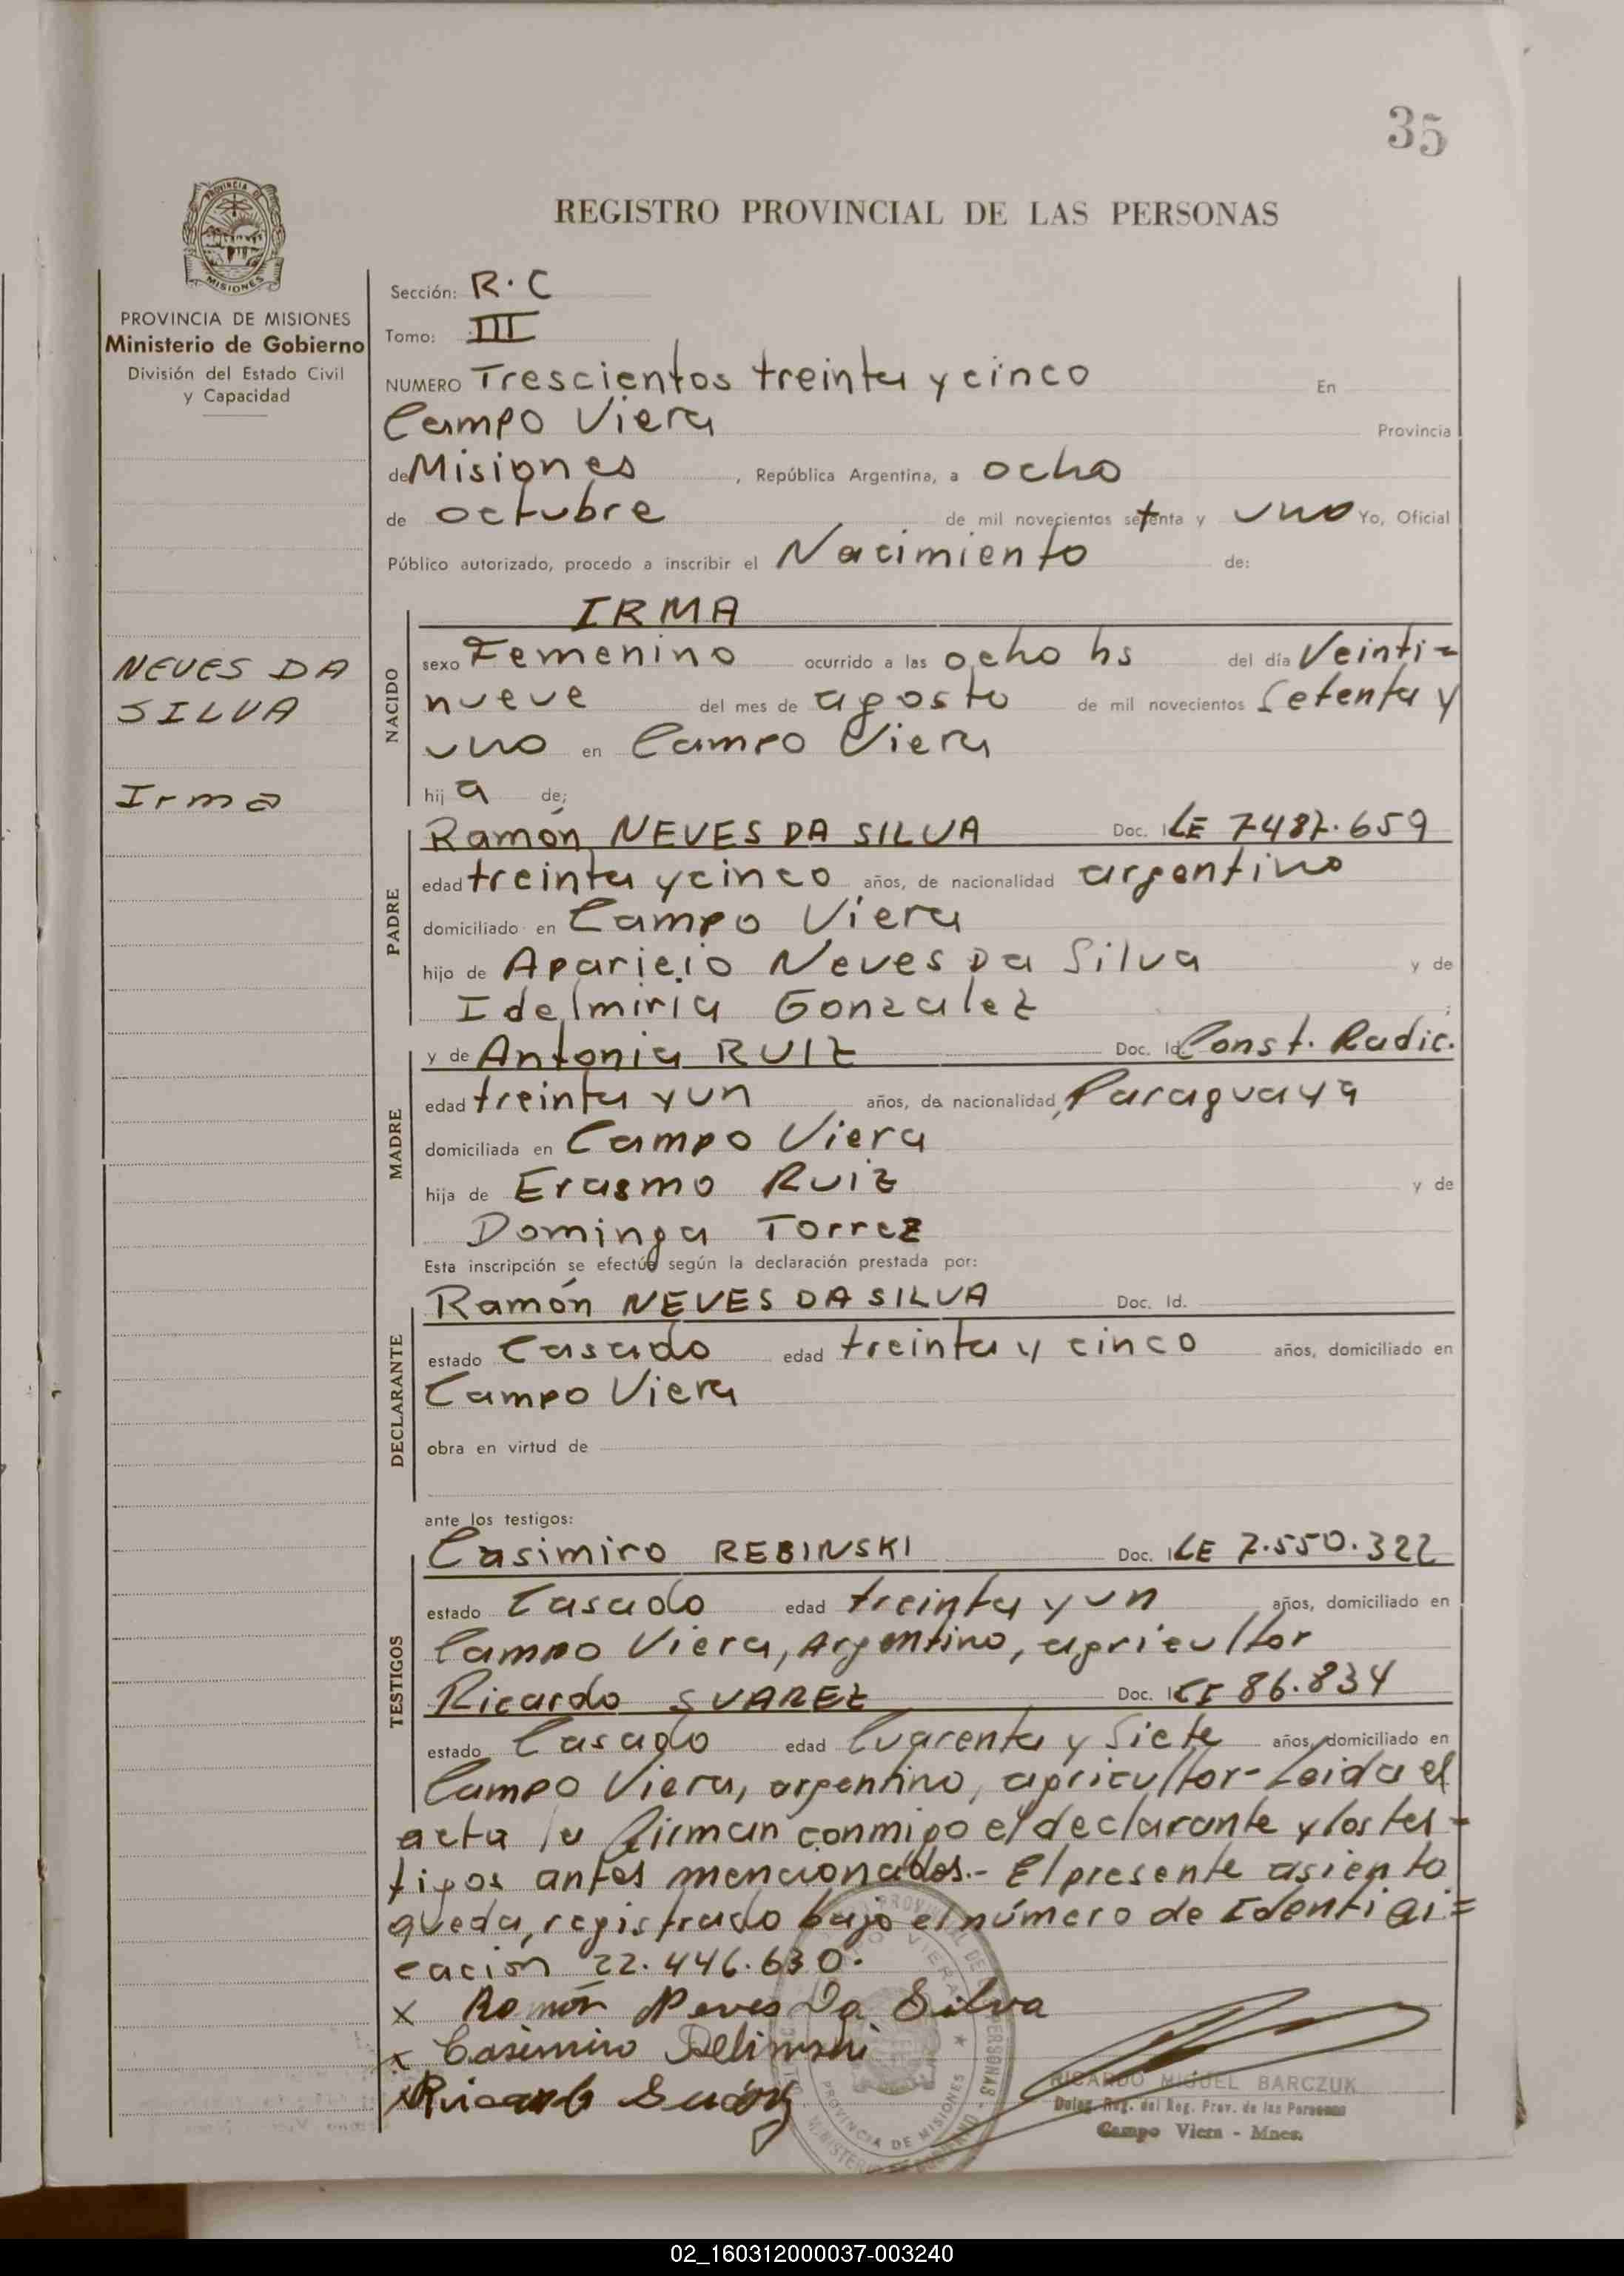 35
REGISTRO PROVINCIAL DE LAS PERSONAS
PROVINCIA DE MISIONES
Ministerio de Gobierno
División del Estado Civil
y Capacidad
NEVES DA
SILVA
Irma
Sección: R.C
Tomo: III
NUMERO Trescientos treinta y cinco En
Campo Viera Provincia
de Misiones, República Argentina, a ocho
de octubre de mil novecientos setenta y uno Yo, Oficial
Público autorizado, procedo a inscribir el Nacimiento de:
IRMA
NACIDO
sexo Femenino ocurrido a las ocho hs del día Veinti=
nueve del mes de agosto de mil novecientos setenta y
uno en Campo Viera
hij a de;
PADRE
Ramón NEVES DA SILVA Doc. LE 7487.659
edad treinta y cinco años, de nacionalidad argentino
domiciliado en Campo Viera
hijo de Aparicio Neves Da Silva y de
Idelmiria Gonzalez ;
MADRE
y de Antonia RUIZ Doc. Id. Const. Radic.
edad treinta y un años, de nacionalidad Paraguaya
domiciliada en Campo Viera
hija de Erasmo Ruiz y de
Dominga Torrez
Esta inscripción se efectúa según la declaración prestada por:
DECLARANTE
Ramón NEVES DA SILVA Doc. Id.
estado Casado edad treinta y cinco años, domiciliado en
Campo Viera
obra en virtud de
ante los testigos:
TESTIGOS
Casimiro REBINSKI Doc. LE 7.550.322
estado Casado edad treinta y un años, domiciliado en
Campo Viera, Argentino, agricultor
Ricardo SUAREZ Doc. 86.834
estado Casado edad Cuarenta y Siete años, domiciliado en
Campo Viera, argentino, agricultor- Leida el
acta la firman conmigo el declarante y los tes=
tigos antes mencionados.- El presente asiento
queda, registrado bajo el número de Identifi=
cación 22.446.630.
x Ramón Neves Da Silva
x Casimiro
x Ricardo
RICARDO MIGUEL BARCZUK
Deleg. Reg. del Reg. Prov. de las Personas
Campo Viera - Mnes.
02_160312000037-003240